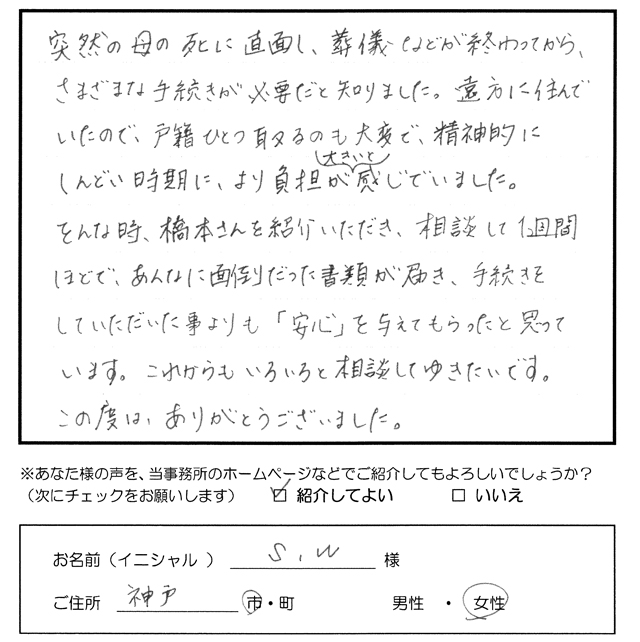 突然の母の死に直面し、葬儀などが終わってから、
さまざまな手続きが必要だと知りました。遠方に住んで
いたので、戸籍ひとつ取るのも大変で、精神的に
しんどい時期に、より負担が大きいと感じでいました。
そんな時、橋本さんを紹介いただき、相談して1週間
ほどで、あんなに面倒だった書類が届き、手続きを
していただいた事よりも「安心」を与えてもらったと思って
います。これからもいろいろと相談してゆきたいです。
この度は、ありがとうございました。
※あなた様の声を、当事務所のホームページなどでご紹介してもよろしいでしょうか？
（次にチェックをお願いします） ☑ 紹介してよい □ いいえ
お名前（イニシャル ） S.W 様
ご住所 神戸 市・町 男性 ・ 女性